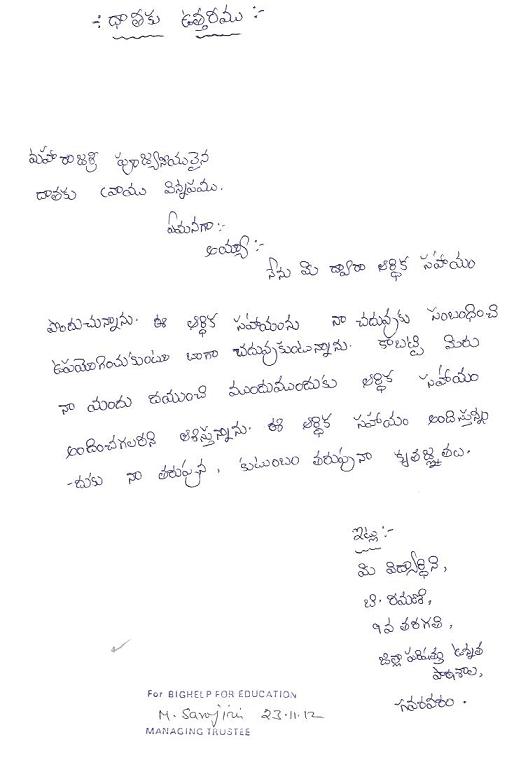 -: దాతకు ఉత్తరము :-
మహారాజశ్రీ పూజ్యనియులైన
దాతకు వ్రాయు విన్నపము.
ఏమనగా:-
అయ్యా:-
నేను మీ ద్వారా ఆర్థిక సహాయం
పొందుచున్నాను. ఈ ఆర్థిక సహాయంను నా చదువుకు సంబంధించి
ఉపయోగించుకుంటూ బాగా చదువుకుంటున్నాను. కాబట్టి మీరు
నా యందు దయుంచి ముందుముందుకు ఆర్థిక సహాయం
అందించగలరని ఆశిస్తున్నాను. ఈ ఆర్థిక సహాయం అందిస్తున్నం
-దుకు నా తరుపున, కుటుంబం తరుపునా కృతజ్ఞతలు.
ఇట్లు:-
మీ విద్యార్థిని,
బి. రమణి,
9వ తరగతి,
జిల్లా పరిషత్తు ఉన్నత
పాఠశాల,
సవరవిల్లి.
For BIGHELP FOR EDUCATION
M. Sarojini 23.11.12
MANAGING TRUSTEE